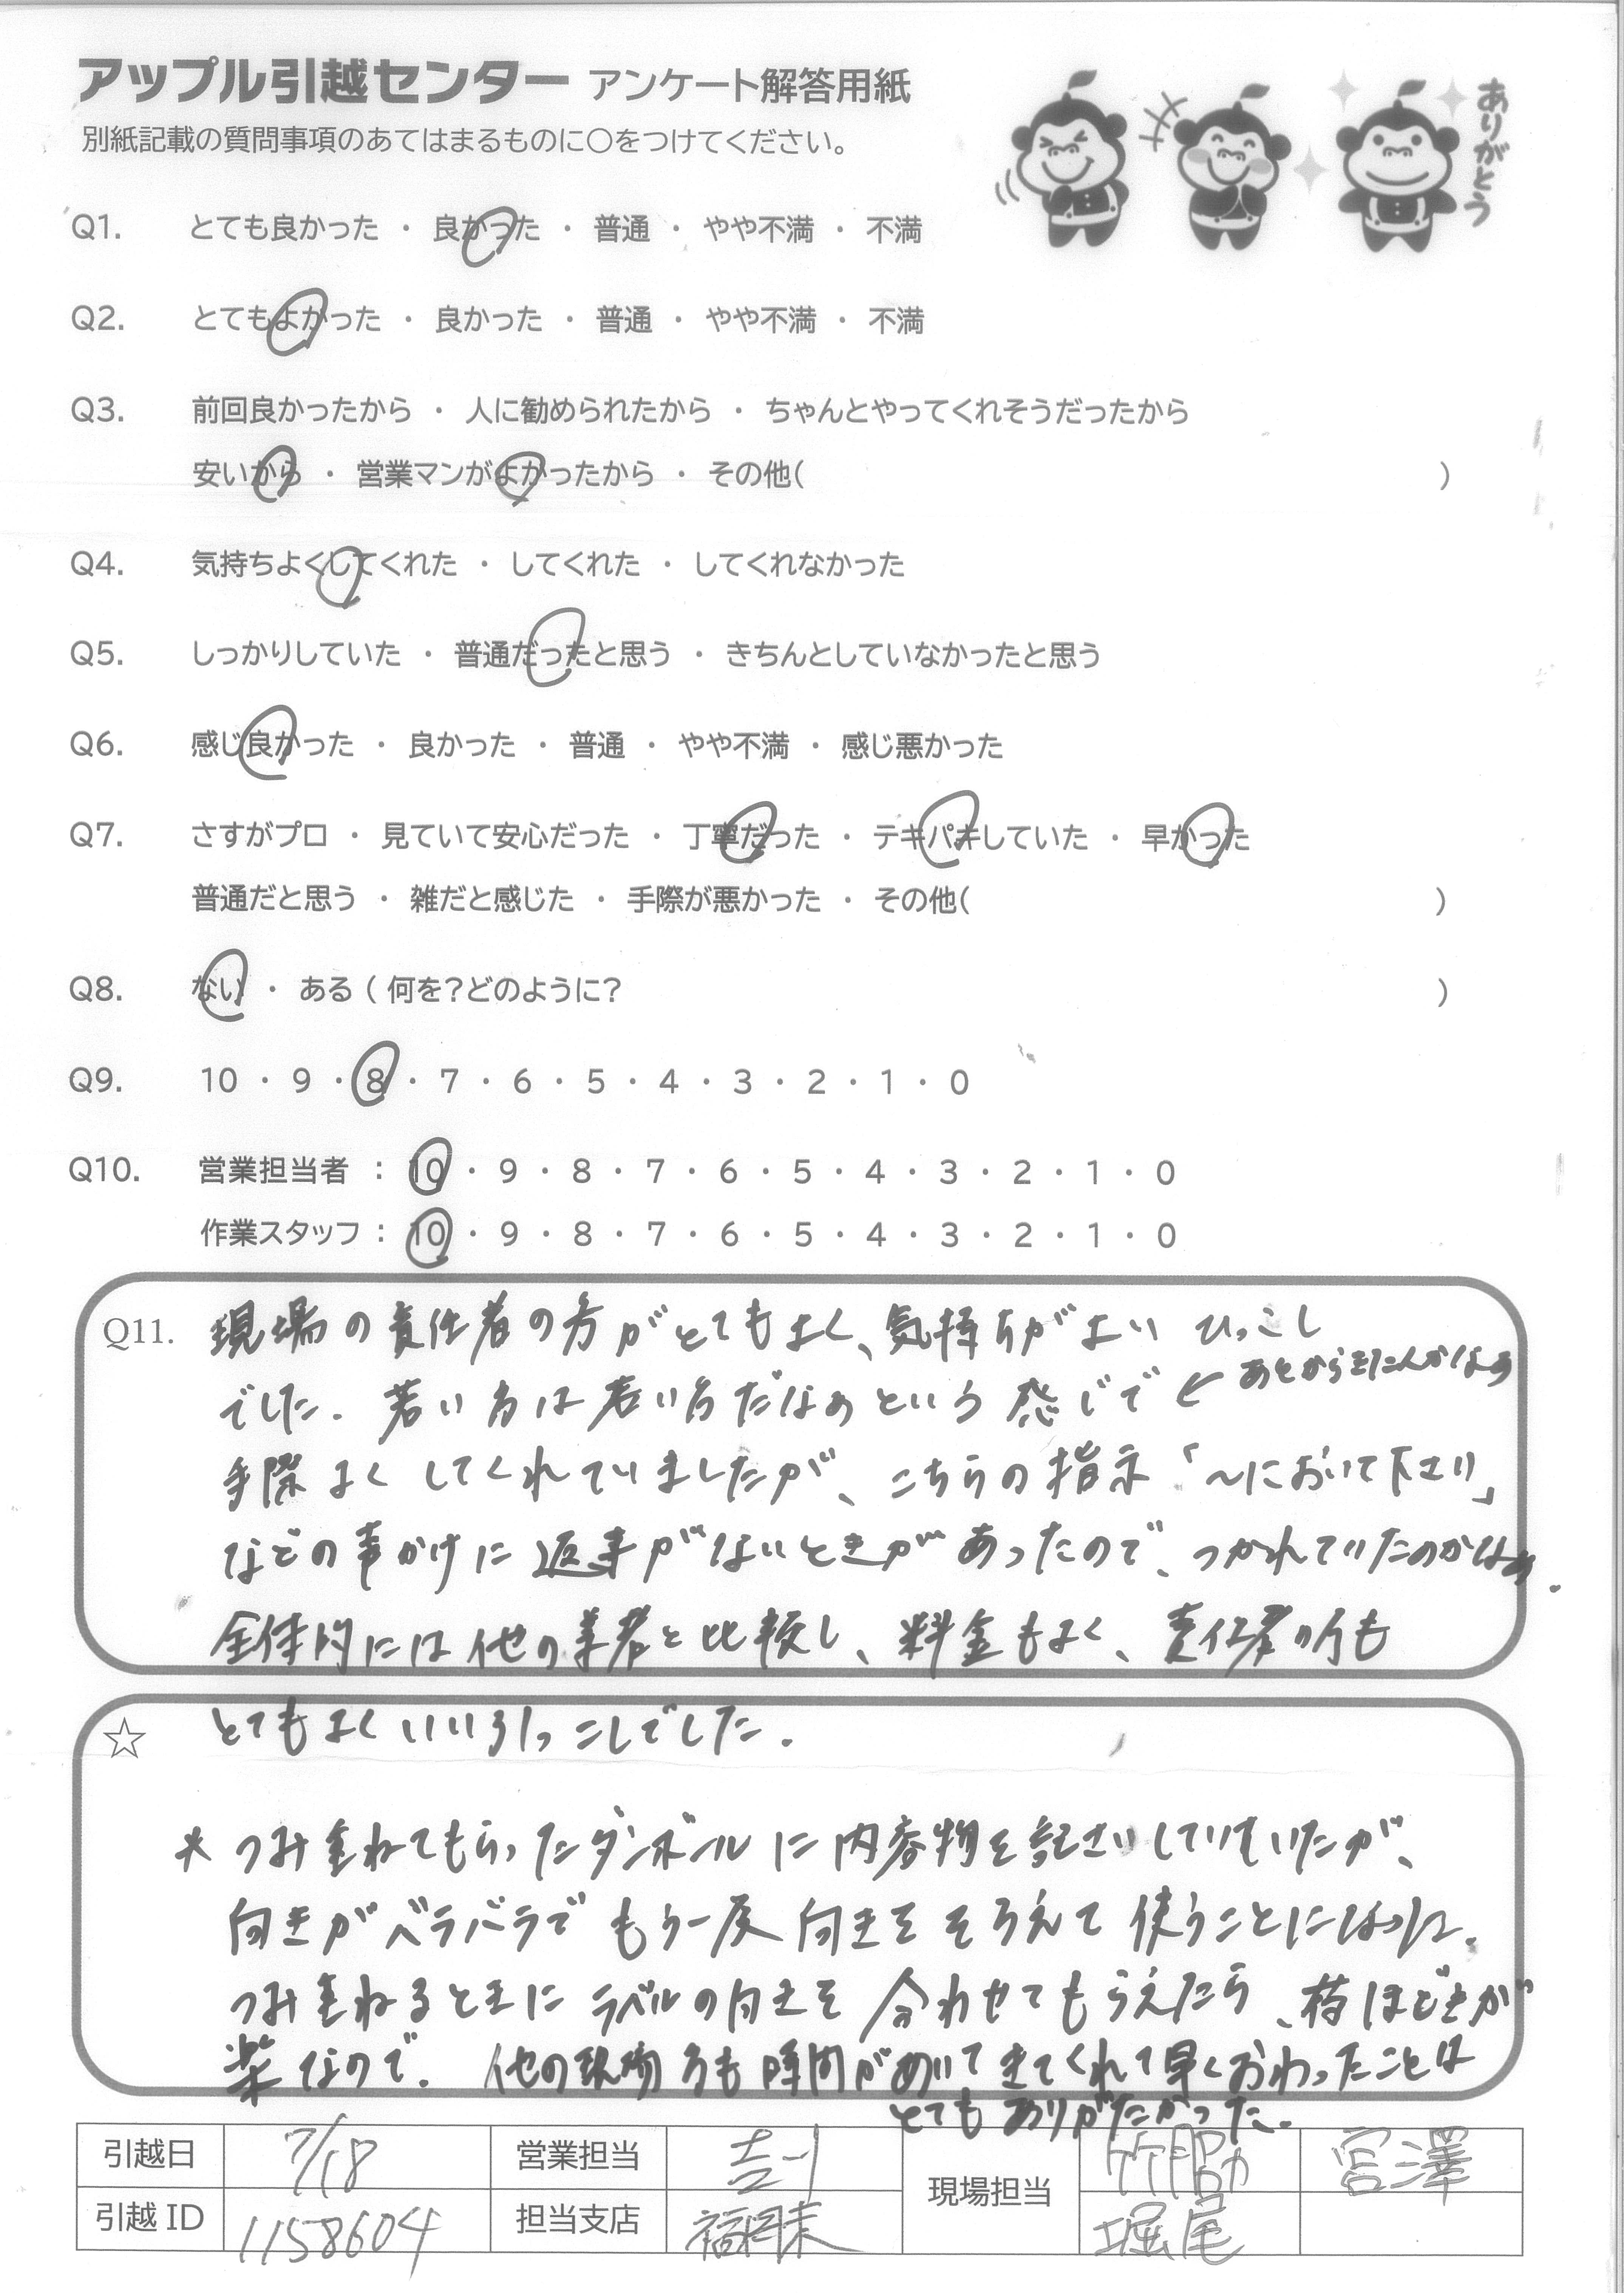 アップル引越センター アンケート解答用紙
ありがとう
別紙記載の質問事項のあてはまるものに○をつけてください。
Q1. とても良かった ・ 良かった ・ 普通 ・ やや不満 ・ 不満
Q2. とてもよかった ・ 良かった ・ 普通 ・ やや不満 ・ 不満
Q3. 前回良かったから ・ 人に勧められたから ・ ちゃんとやってくれそうだったから
安いから ・ 営業マンがよかったから ・ その他( )
Q4. 気持ちよくしてくれた ・ してくれた ・ してくれなかった
Q5. しっかりしていた ・ 普通だったと思う ・ きちんとしていなかったと思う
Q6. 感じ良かった ・ 良かった ・ 普通 ・ やや不満 ・ 感じ悪かった
Q7. さすがプロ ・ 見ていて安心だった ・ 丁寧だった ・ テキパキしていた ・ 早かった
普通だと思う ・ 雑だと感じた ・ 手際が悪かった ・ その他( )
Q8. ない ・ ある ( 何を?どのように? )
Q9. 10 ・ 9 ・ 8 ・ 7 ・ 6 ・ 5 ・ 4 ・ 3 ・ 2 ・ 1 ・ 0
Q10. 営業担当者 : 10 ・ 9 ・ 8 ・ 7 ・ 6 ・ 5 ・ 4 ・ 3 ・ 2 ・ 1 ・ 0
作業スタッフ : 10 ・ 9 ・ 8 ・ 7 ・ 6 ・ 5 ・ 4 ・ 3 ・ 2 ・ 1 ・ 0
Q11. 現場の責任者の方がとてもよく、気持ちがよい ひっこし
でした. 若い方は若い方だなぁという 感じで ← あとからきた人かなぁ
手際よく してくれていましたが、こちらの指示「~において下さい」
などの声かけに 返事がないときが あったので、つかれていたのかなぁ.
全体的には他の業者と比較し、料金もよく、責任者の方も
☆ とてもよくいい引っこしでした.
* つみ重ねてもらったダンボールに内容物を記さいしていたが、
向きがバラバラで もう一度 向きを そろえて 使うことになった.
つみ重ねるときに ラベルの向きを 合わせてもらえたら、荷ほどきが
楽なので. 他の現場 方も 時間があいて きてくれて早くおわったことは
とても ありがたかった.
引越日 7/18 営業担当 吉川 現場担当 竹脇 宮澤
引越 ID 1158604 担当支店 福岡東 堀尾